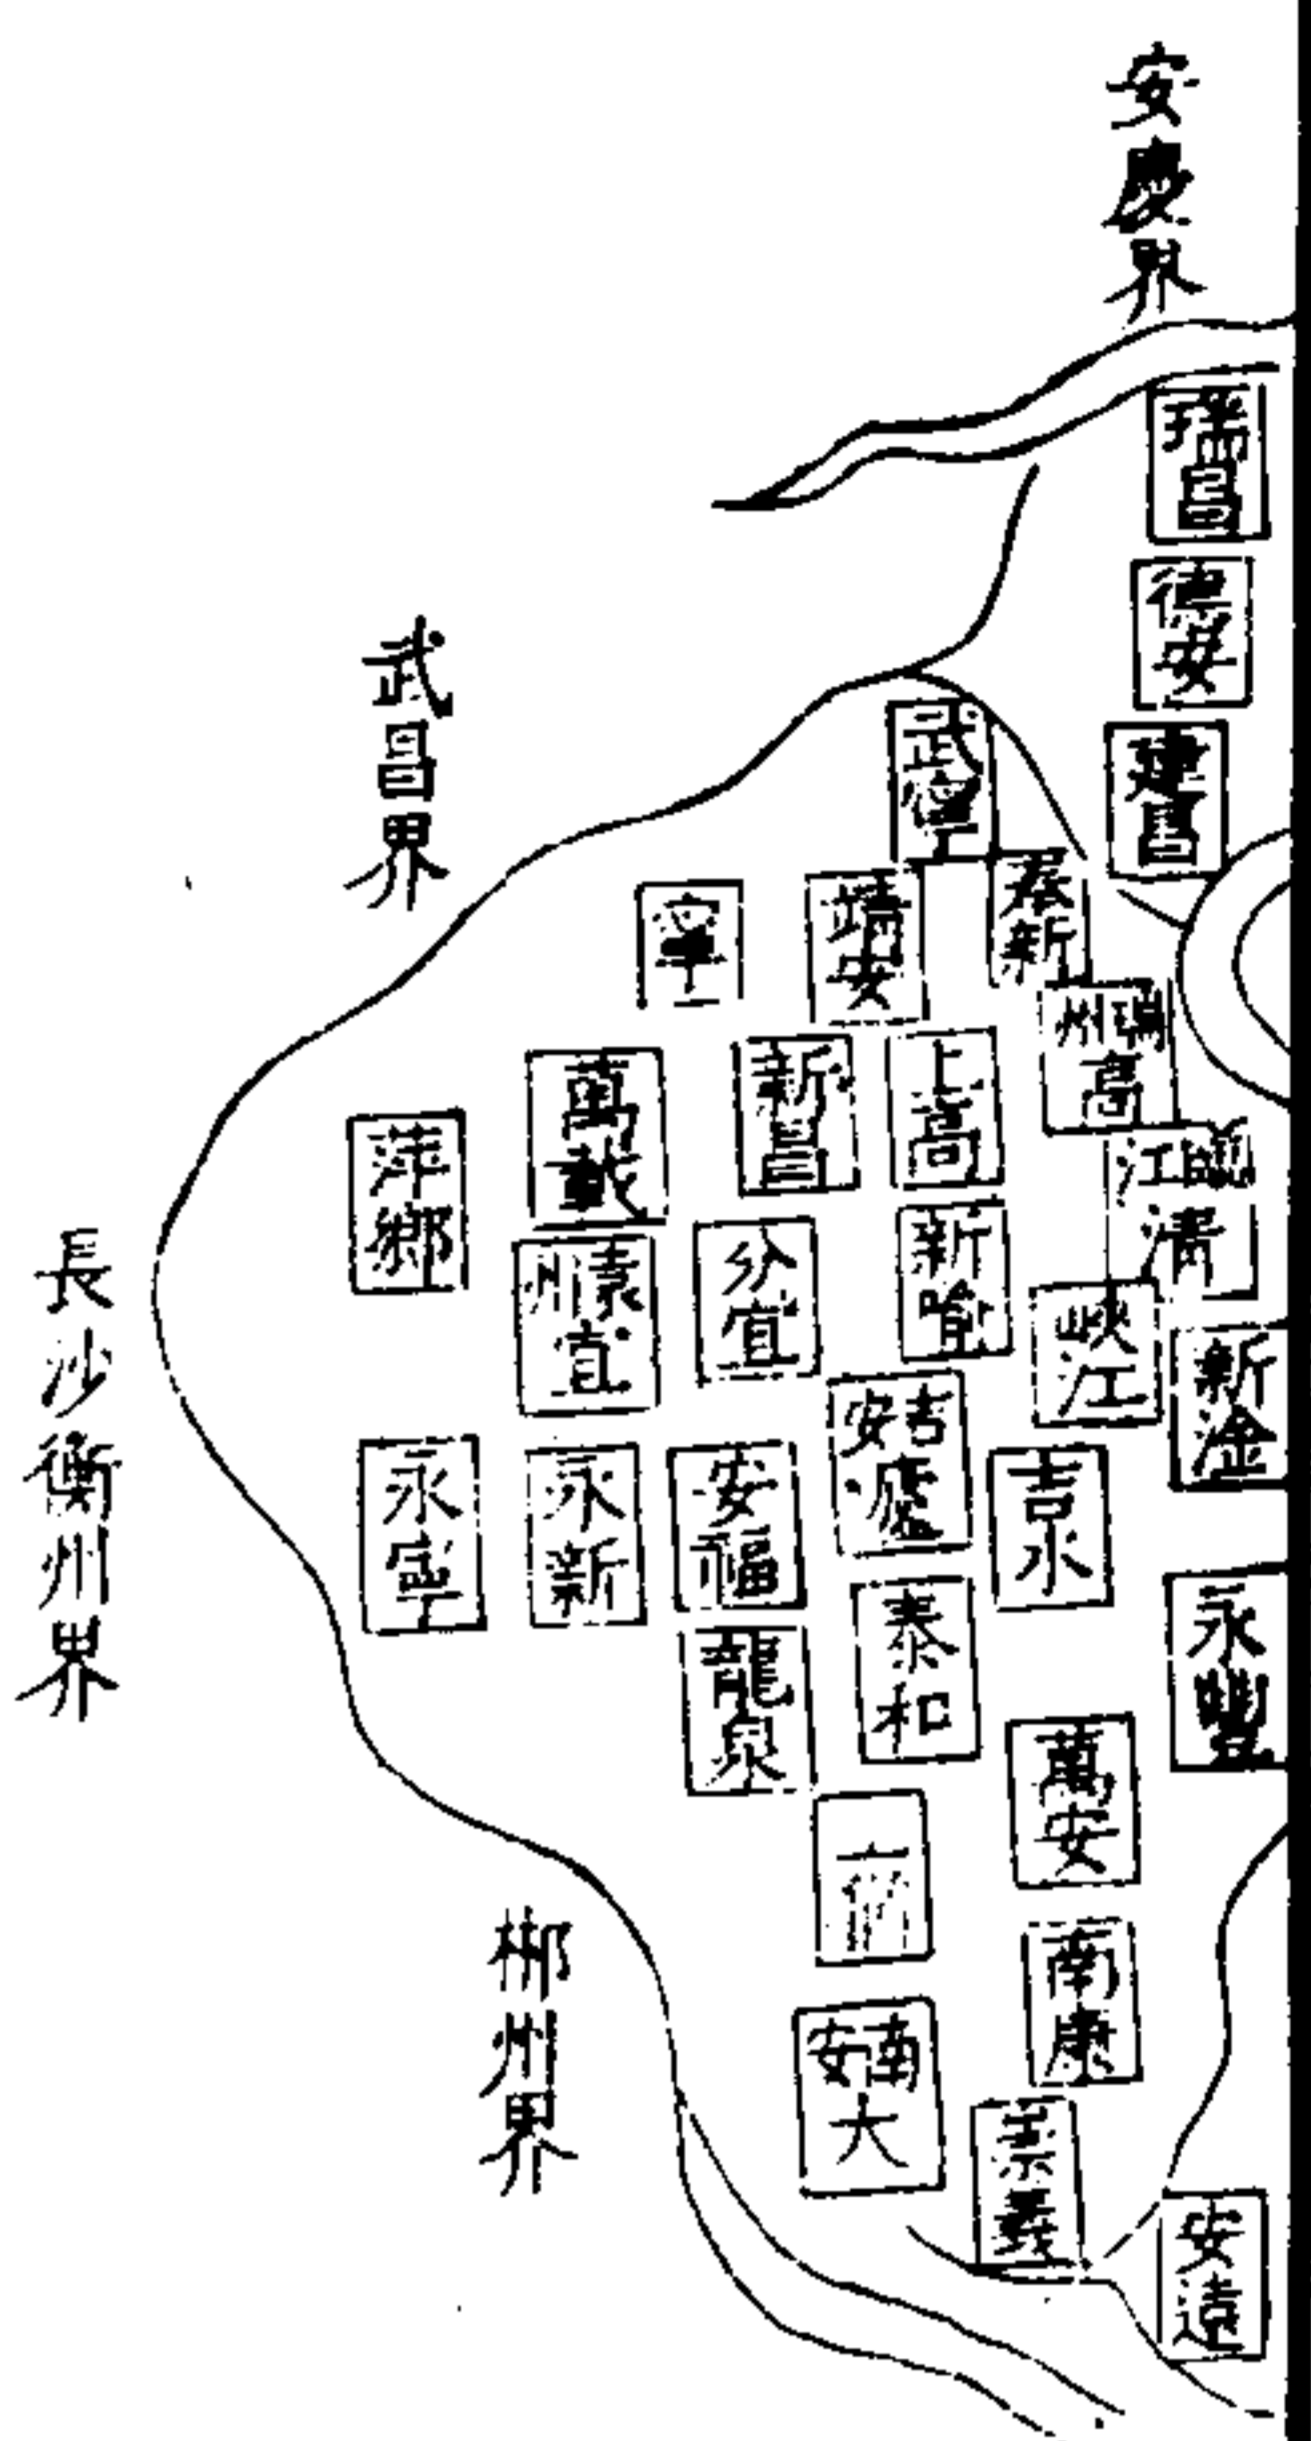 安慶界
瑞昌
德安
建昌
武昌界
武寧
奉新
靖安
寧
瑞州高
上高
新昌
萬載
萍鄉
臨江清
新喻
分宜
袁州宜
峽江
新淦
長沙衡州界
吉安廬
吉水
安福
永新
永寧
永豐
泰和
龍泉
萬安
上猶
南康
郴州界
南安大
崇義
安遠